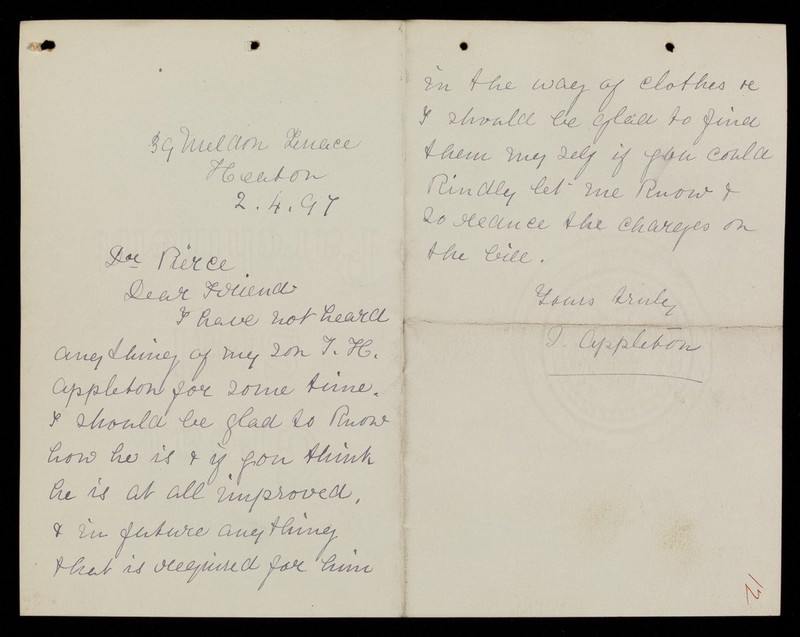 39 Meldon Terrace
Heaton
2.4.97
Dr Pierce
Dear Friend
I have not heard
any thing of my son T. H.
Appleton for some time.
I should be glad to know
how he is & if you think
he is at all improved,
& in future any thing
that is required for him
in the way of clothes &c
I should be glad to find
them my self if you could
kindly let me know &
so reduce the charges on
the bill.
Yours truly
J. Appleton
12